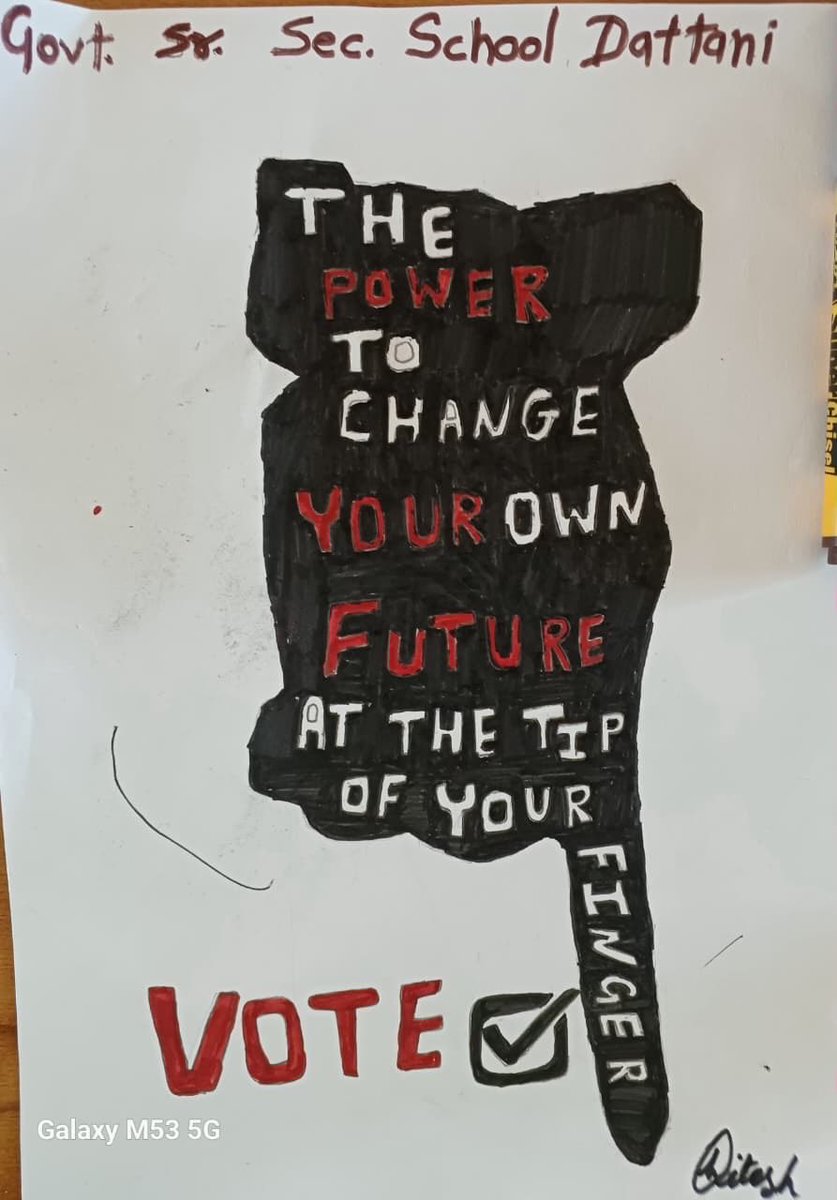 Govt. Sr. Sec. School Dattani
THE
POWER
TO
CHANGE
YOUR OWN
FUTURE
AT THE TIP
OF YOUR
FINGER
VOTE
Galaxy M53 5G
Ritesh